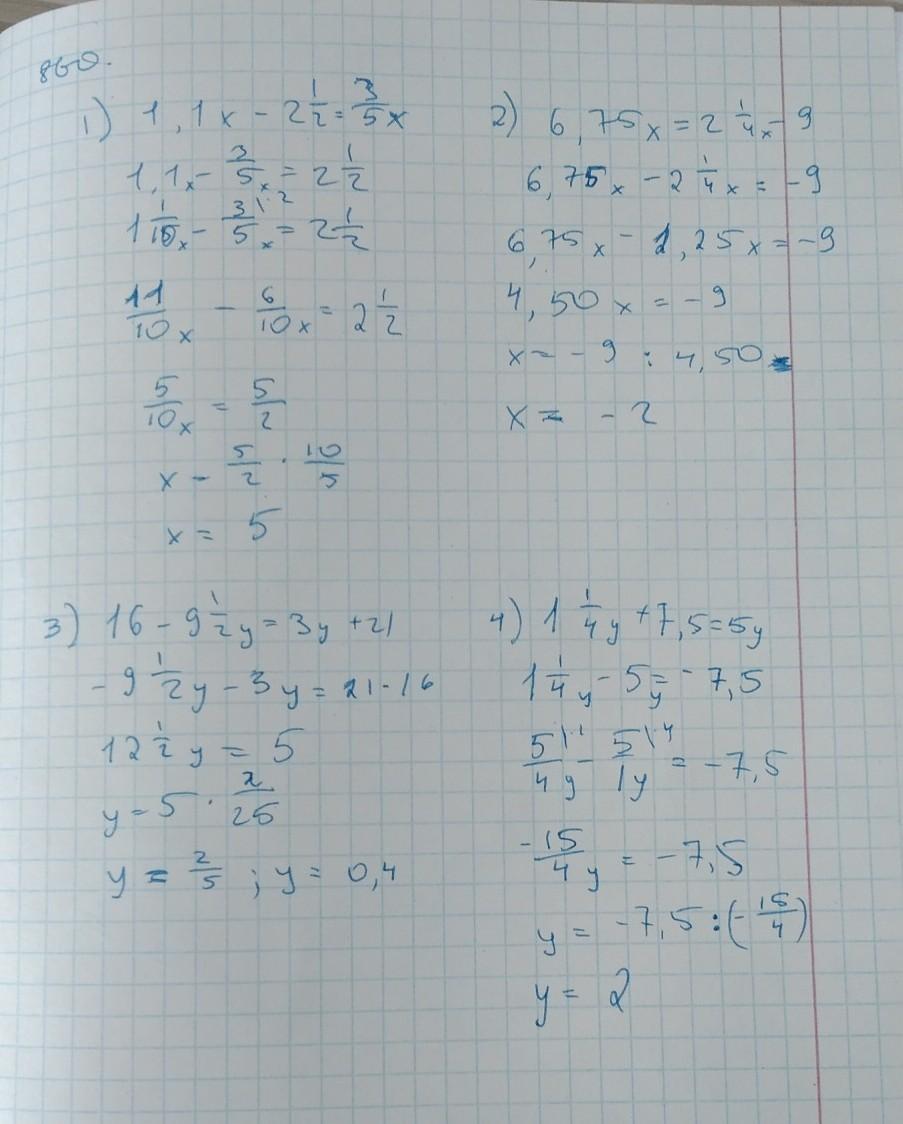 860.
1) 1,1x - 2 1/2 = 3/5 x
1,1x - 3/5 x = 2 1/2
1 1/10 x - 3/5 \2 x = 2 1/2
11/10 x - 6/10 x = 2 1/2
5/10 x = 5/2
x - 5/2 · 10/5
x = 5
2) 6,75x = 2 1/4 x - 9
6,75x - 2 1/4 x = -9
6,75x - 2,25x = -9
4,50x = -9
x = -9 : 4,50
x = -2
3) 16 - 9 1/2 y = 3y + 21
-9 1/2 y - 3y = 21 - 16
12 1/2 y = 5
y = 5 · 2/25
y = 2/5 ; y = 0,4
4) 1 1/4 y + 7,5 = 5y
1 1/4 y - 5y = -7,5
5/4 \1 y - 5/1 \4 y = -7,5
-15/4 y = -7,5
y = -7,5 : (-15/4)
y = 2